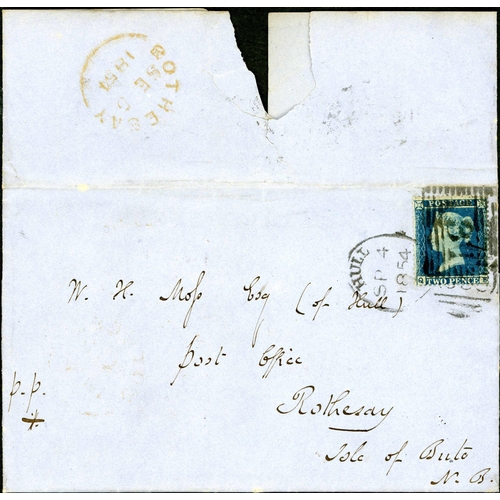 ROTHESAY
SE
1854
POSTAGE
TWO PENCE
HULL
SP 4
1854
W. H. Moſs Esq (of Hull)
Post Office
Rothesay
Isle of Bute
N. B.
p.p.